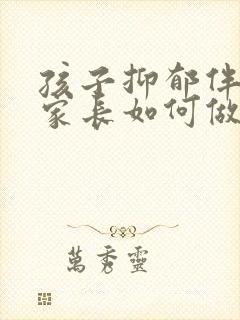 孩子抑郁伴
家长如何做
萬秀靈